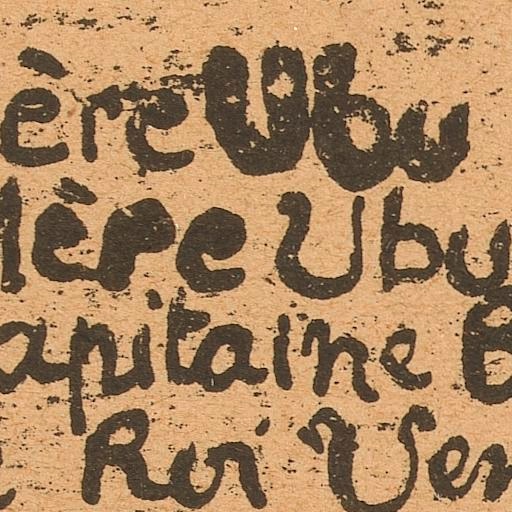 ère Ubu
Mère Ubu
apitaine B
Roi Ven